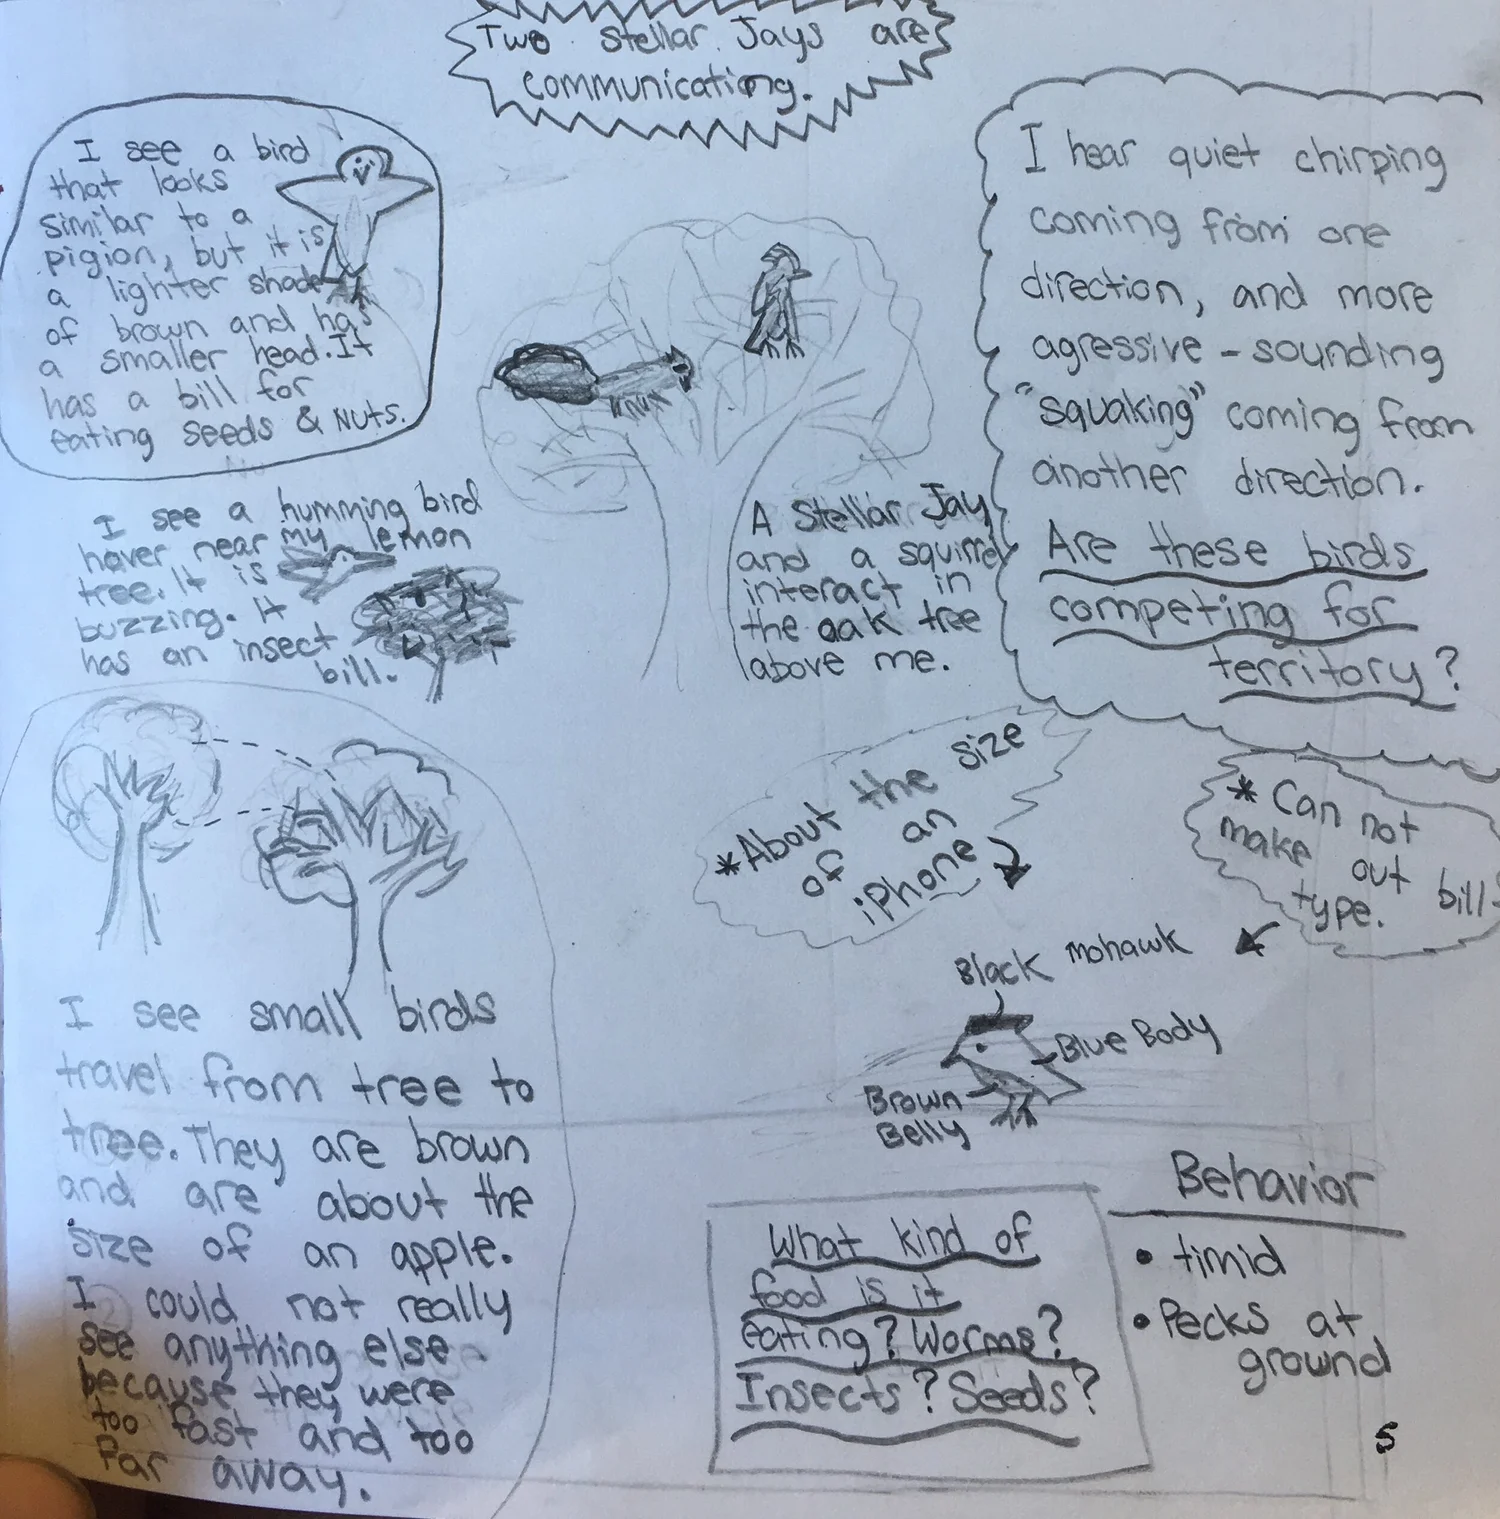 Two Stellar Jays are
communicationg.
I see a bird
that looks
similar to a
pigion, but it is
a lighter shade
of brown and has
a smaller head. It
has a bill for
eating seeds & Nuts.
I hear quiet chirping
coming from one
direction, and more
agressive - sounding
"squaking" coming from
another direction.
Are these birds
competing for
territory?
I see a humming bird
hover near my lemon
tree. It is
buzzing. It
has an insect
bill.
A Stellar Jay
and a squirrel
interact in
the oak tree
above me.
*About the size
of an
iPhone
* Can not
make out bill
type.
Black mohawk
Blue Body
Brown
Belly
I see small birds
travel from tree to
tree. They are brown
and are about the
size of an apple.
I could not really
see anything else
because they were
too fast and too
far away.
What kind of
food is it
eating? Worms?
Insects? Seeds?
Behavior
• timid
• Pecks at
ground
5